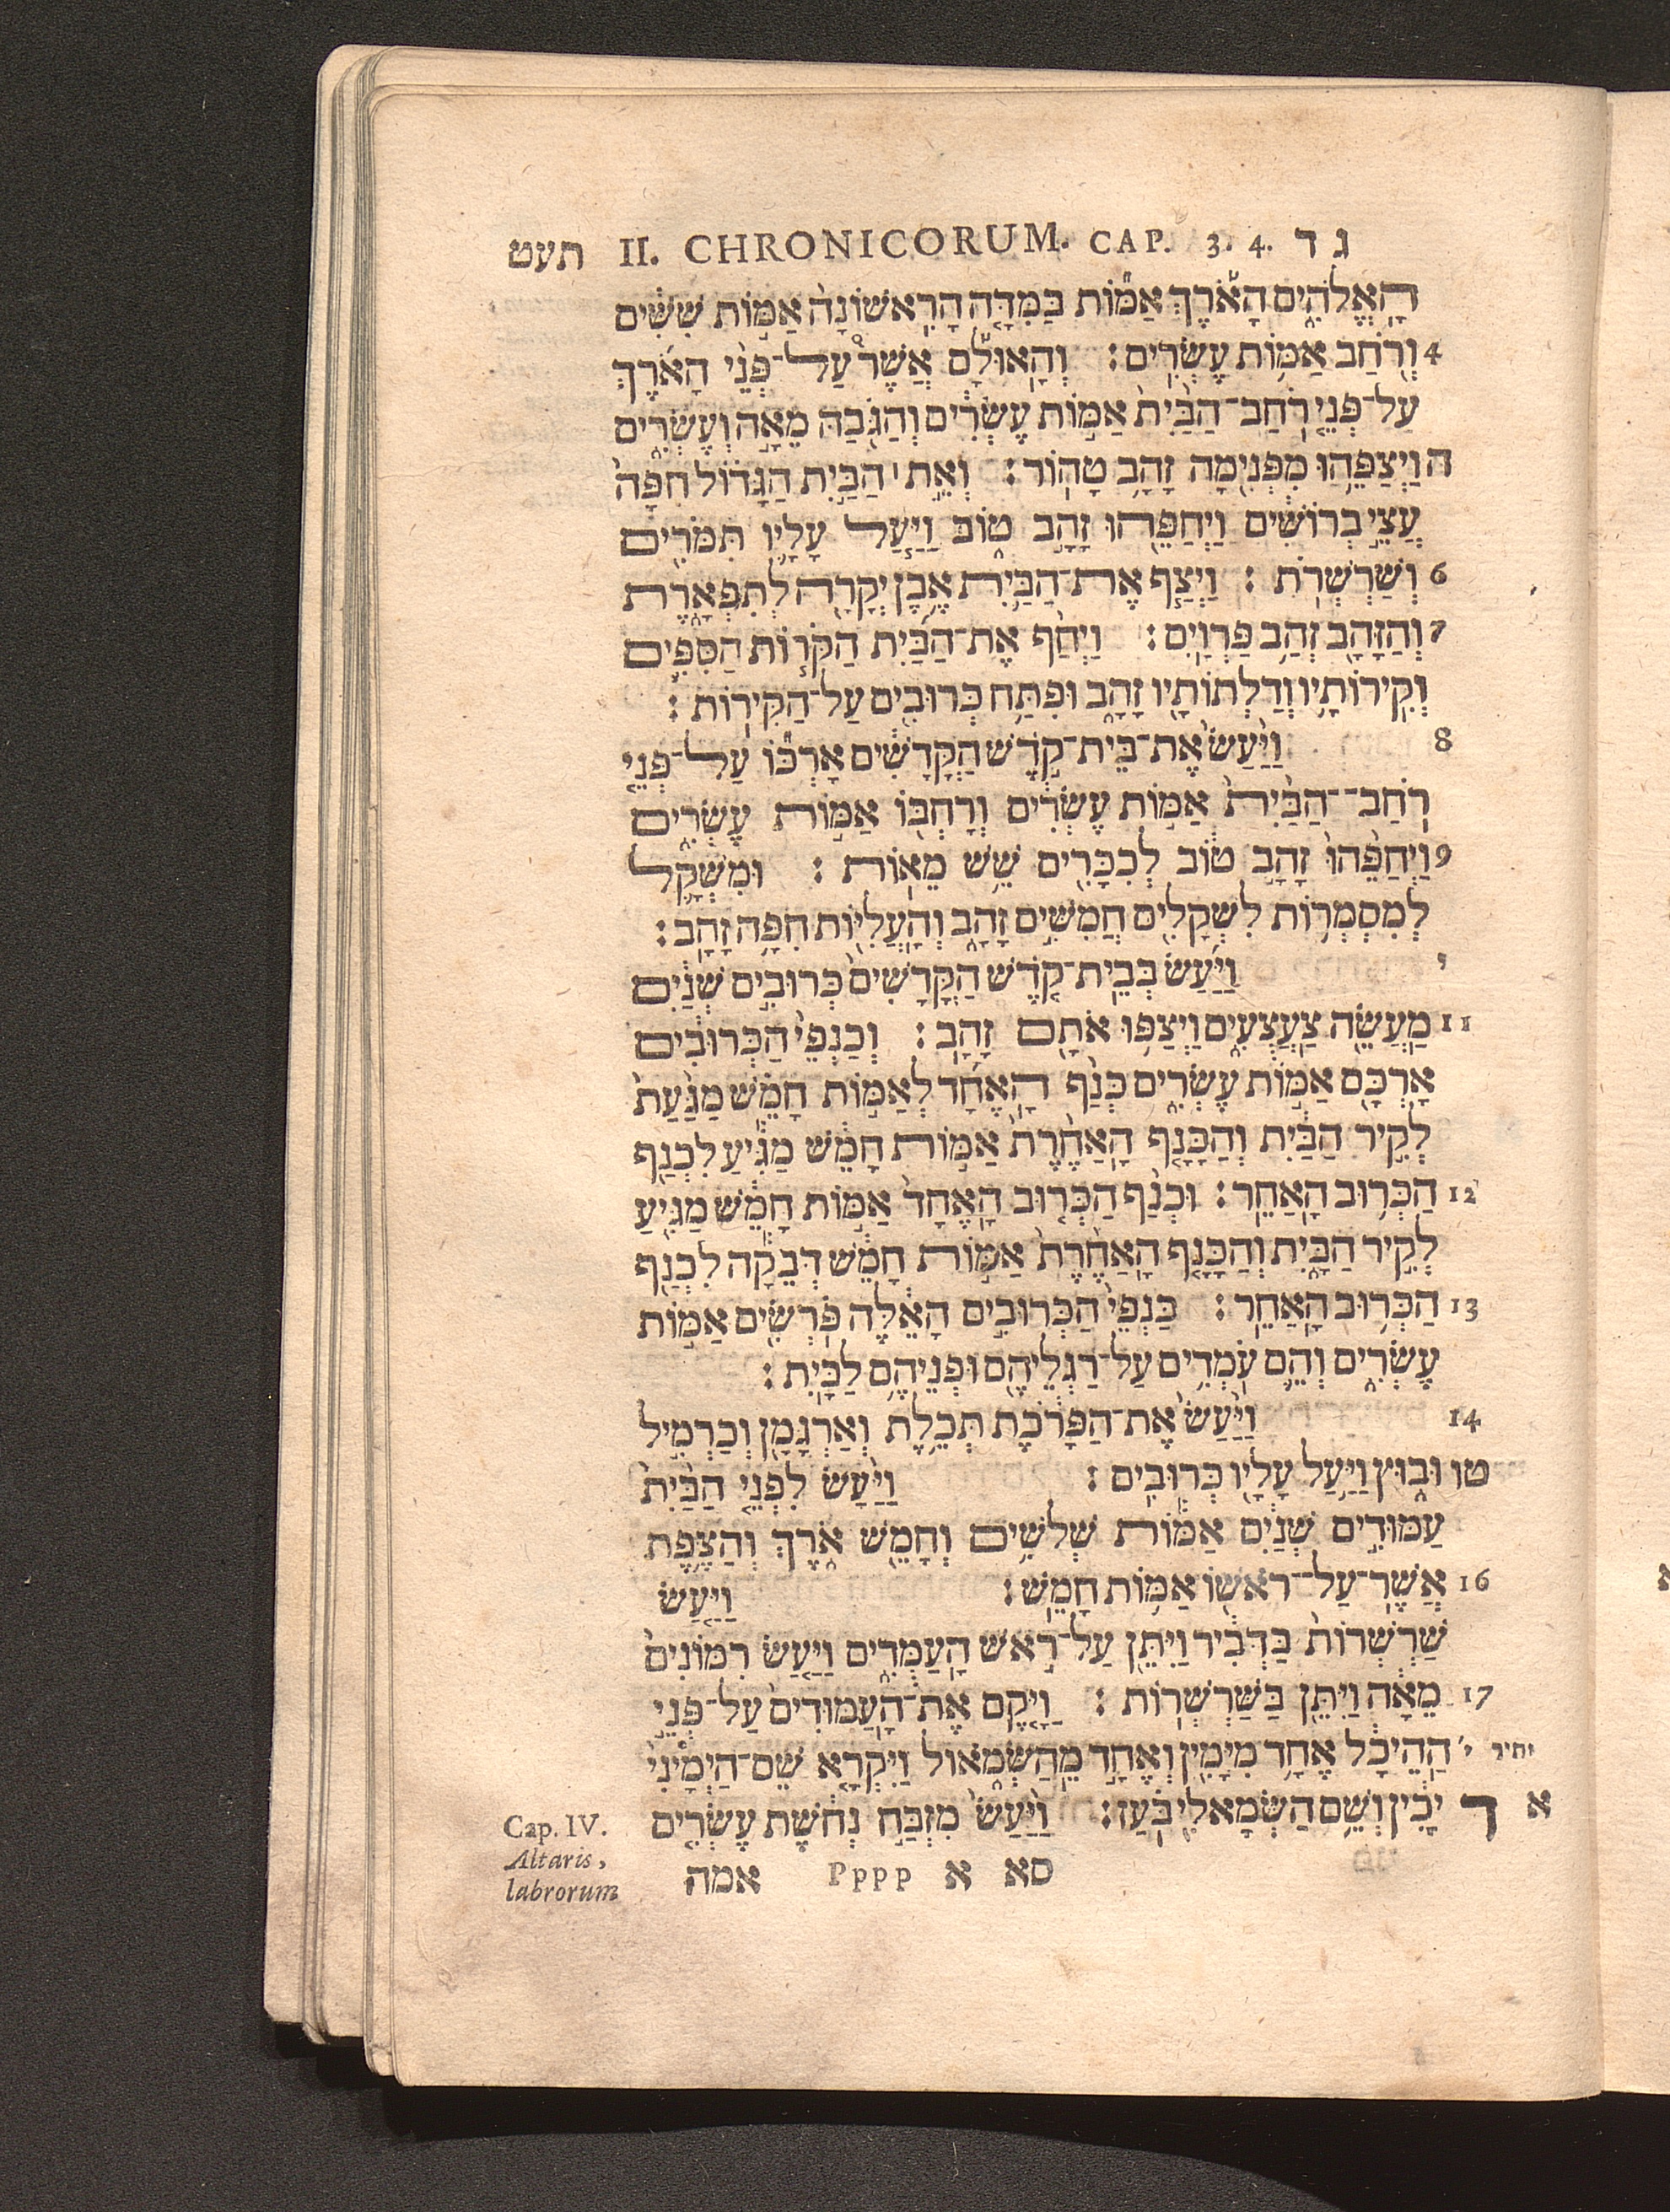 תעט II. CHRONICORUM. CAP. 3. 4. ג ד
הָאֱלֹהִ֑ים הָאֹ֡רֶךְ אַמּ֞וֹת בַּמִּדָּ֤ה הָרִֽאשׁוֹנָה֙ אַמּ֣וֹת שִׁשִּׁ֔ים
4 וְרֹ֖חַב אַמּ֥וֹת עֶשְׂרִֽים׃ וְהָאוּלָ֡ם אֲשֶׁר֩ עַל־פְּנֵ֨י הָאֹ֜רֶךְ
עַל־פְּנֵ֤י רֹֽחַב־הַבַּ֙יִת֙ אַמּ֣וֹת עֶשְׂרִ֔ים וְהַגֹּ֖בַהּ מֵאָ֣ה וְעֶשְׂרִ֑ים
ה וַיְצַפֵּ֥הוּ מִפְּנִ֖ימָה זָהָ֥ב טָהֽוֹר׃ וְאֵ֣ת׀ הַבַּ֣יִת הַגָּד֗וֹל חִפָּה֙
עֲצֵ֣י בְרוֹשִׁ֔ים וַיְחַפֵּ֖הוּ זָהָ֣ב ט֑וֹב וַיַּ֧עַל עָלָ֛יו תִּמֹּרִ֖ים
6 וְשַׁרְשְׁרֹֽת׃ וַיְצַ֧ף אֶת־הַבַּ֛יִת אֶ֥בֶן יְקָרָ֖ה לְתִפְאָ֑רֶת
7 וְהַזָּהָ֖ב זְהַ֥ב פַּרְוָֽיִם׃ וַיְחַ֨ף אֶת־הַבַּ֜יִת הַקֹּר֧וֹת הַסִּפִּ֛ים
וְקִֽירוֹתָ֥יו וְדַלְתוֹתָ֖יו זָהָ֑ב וּפִתַּ֥ח כְּרוּבִ֖ים עַל־הַקִּירֽוֹת׃
8 וַיַּ֙עַשׂ֙ אֶת־בֵּֽית־קֹ֣דֶשׁ הַקֳּדָשִׁ֔ים אָרְכּ֞וֹ עַל־פְּנֵ֤י
רֹֽחַב־הַבַּ֙יִת֙ אַמּ֣וֹת עֶשְׂרִ֔ים וְרָחְבּ֖וֹ אַמּ֣וֹת עֶשְׂרִ֑ים
9 וַיְחַפֵּ֙הוּ֙ זָהָ֣ב ט֔וֹב לְכִכָּרִ֖ים שֵׁ֥שׁ מֵאֽוֹת׃ וּמִשְׁקָ֧ל
לְמִסְמְר֛וֹת לִשְׁקָלִ֖ים חֲמִשִּׁ֣ים זָהָ֑ב וְהָעֲלִיּ֖וֹת חִפָּ֥ה זָהָֽב׃
י וַיַּ֜עַשׂ בְּבֵֽית־קֹ֤דֶשׁ הַקֳּדָשִׁים֙ כְּרוּבִ֣ים שְׁנַ֔יִם
11 מַעֲשֵׂ֖ה צַעֲצֻעִ֑ים וַיְצַפּ֥וּ אֹתָ֖ם זָהָֽב׃ וְכַנְפֵי֙ הַכְּרוּבִ֔ים
אָרְכָּ֖ם אַמּ֣וֹת עֶשְׂרִ֑ים כְּנַ֨ף הָאֶחָ֜ד לְאַמּ֣וֹת חָמֵ֗שׁ מַגַּ֙עַת֙
לְקִ֣יר הַבַּ֔יִת וְהַכָּנָ֤ף הָאַחֶ֙רֶת֙ אַמּ֣וֹת חָמֵ֔שׁ מַגִּ֕יעַ לִכְנַ֖ף
12 הַכְּר֥וּב הָאַחֵֽר׃ וּכְנַ֨ף הַכְּר֤וּב הָאֶחָד֙ אַמּ֣וֹת חָמֵ֔שׁ מַגִּ֖יעַ
לְקִ֣יר הַבָּ֑יִת וְהַכָּנָ֤ף הָאַחֶ֙רֶת֙ אַמּ֣וֹת חָמֵ֔שׁ דְּבֵקָ֕ה לִכְנַ֖ף
13 הַכְּר֥וּב הָאַחֵֽר׃ כַּנְפֵי֙ הַכְּרוּבִ֣ים הָאֵ֔לֶּה פֹּרְשִׂ֖ים אַמּ֣וֹת
עֶשְׂרִ֑ים וְהֵ֛ם עֹמְדִ֥ים עַל־רַגְלֵיהֶ֖ם וּפְנֵיהֶ֥ם לַבָּֽיִת׃
14 וַיַּ֙עַשׂ֙ אֶת־הַפָּרֹ֔כֶת תְּכֵ֥לֶת וְאַרְגָּמָ֖ן וְכַרְמִ֣יל
טו וּב֑וּץ וַיַּ֥עַל עָלָ֖יו כְּרוּבִֽים׃ וַיַּ֜עַשׂ לִפְנֵ֤י הַבַּ֙יִת֙
עַמּוּדִ֣ים שְׁנַ֔יִם אַמּ֕וֹת שְׁלֹשִׁ֥ים וְחָמֵ֖שׁ אֹ֑רֶךְ וְהַצֶּ֥פֶת
16 אֲשֶׁר־עַל־רֹאשׁ֖וֹ אַמּ֥וֹת חָמֵֽשׁ׃ וַיַּ֤עַשׂ
שַׁרְשְׁרוֹת֙ בַּדְּבִ֔יר וַיִּתֵּ֖ן עַל־רֹ֣אשׁ הָעַמֻּדִ֑ים וַיַּ֤עַשׂ רִמּוֹנִים֙
17 מֵאָ֔ה וַיִּתֵּ֖ן בַּשַּׁרְשְׁרֽוֹת׃ וַיָּ֤קֶם אֶת־הָעַמּוּדִים֙ עַל־פְּנֵ֣י
יתיר י׳ הַהֵיכָ֔ל אֶחָ֥ד מִיָּמִ֖ין וְאֶחָ֣ד מֵהַשְּׂמֹ֑אול וַיִּקְרָ֤א שֵׁם־הַיְמָינִי֙
א ד יָכִ֔ין וְשֵׁ֥ם הַשְּׂמָאלִ֖י בֹּֽעַז׃ וַיַּ֙עַשׂ֙ מִזְבַּ֣ח נְחֹ֔שֶׁת עֶשְׂרִ֤ים
Cap. IV.
Altaris,
labrorum
סא א Pppp אמה